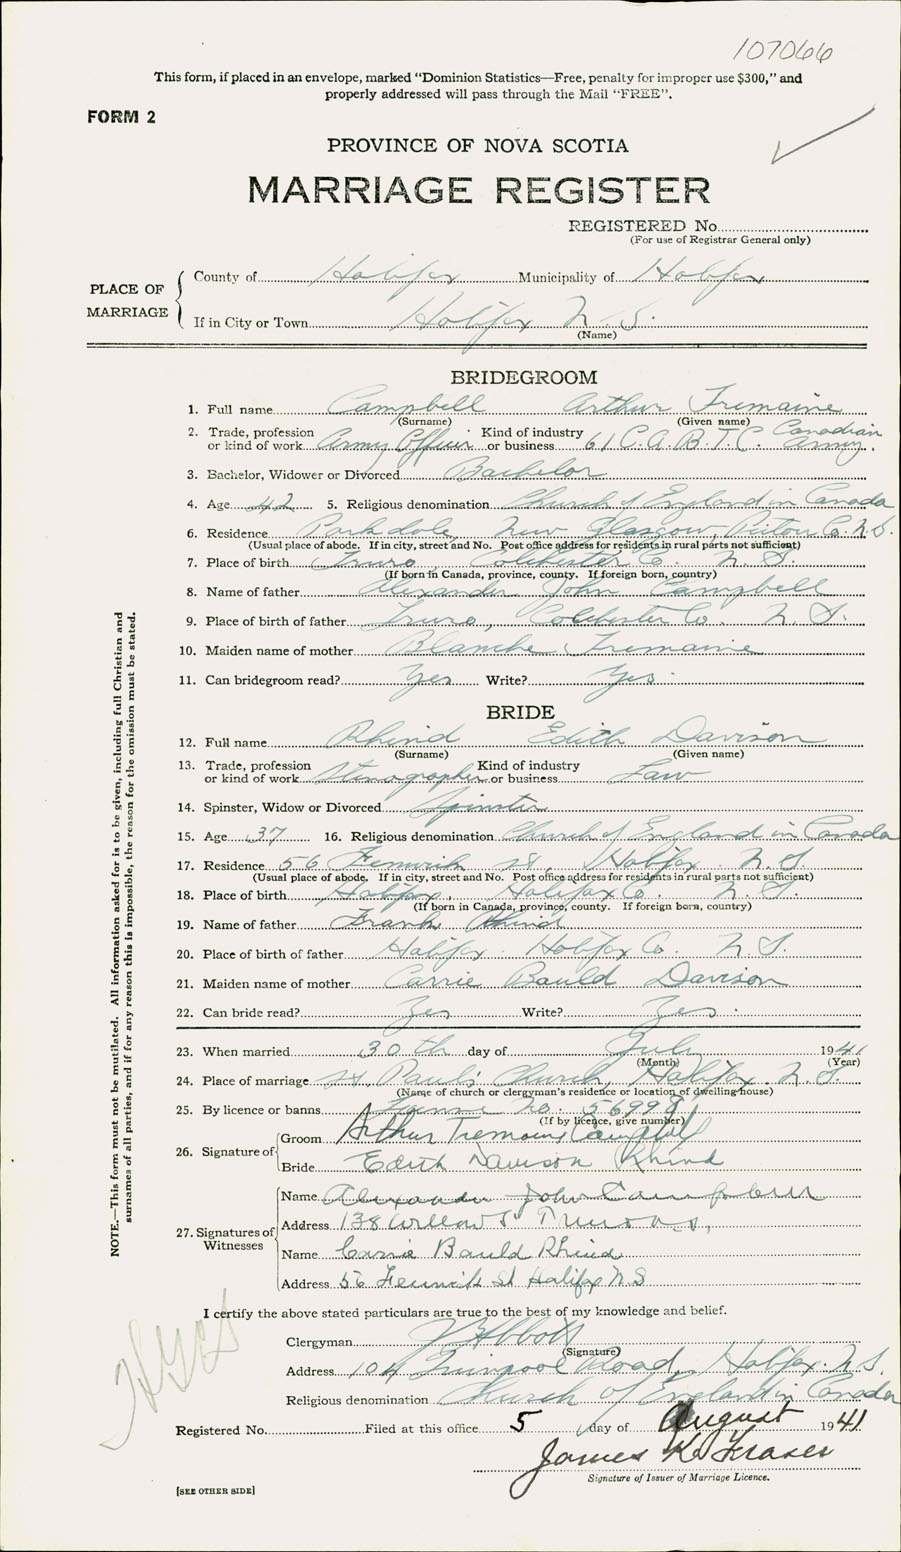 107066
This form, if placed in an envelope, marked "Dominion Statistics—Free, penalty for improper use $300," and
properly addressed will pass through the Mail "FREE".
FORM 2
PROVINCE OF NOVA SCOTIA
MARRIAGE REGISTER
REGISTERED No.
(For use of Registrar General only)
PLACE OF MARRIAGE
County of Halifax Municipality of Halifax
If in City or Town Halifax N.S.
(Name)
BRIDEGROOM
1. Full name Campbell Arthur Tremaine
(Surname) (Given name)
2. Trade, profession or kind of work Army Officer Kind of industry or business 61 C.A.B.T.C. Canadian Army.
3. Bachelor, Widower or Divorced Bachelor
4. Age 42 5. Religious denomination Church of England in Canada
6. Residence Parkdale, New Glasgow, Pictou Co. N.S.
(Usual place of abode. If in city, street and No. Post office address for residents in rural parts not sufficient)
7. Place of birth Truro, Colchester Co. N.S.
(If born in Canada, province, county. If foreign born, country)
8. Name of father Alexander John Campbell
9. Place of birth of father Truro, Colchester Co. N.S.
10. Maiden name of mother Blanche Tremaine
11. Can bridegroom read? Yes Write? Yes.
BRIDE
12. Full name Rhind Edith Davison
(Surname) (Given name)
13. Trade, profession or kind of work Stenographer Kind of industry or business Law
14. Spinster, Widow or Divorced Spinster
15. Age 37 16. Religious denomination Church of England in Canada
17. Residence 56 Fenwick St, Halifax. N.S.
(Usual place of abode. If in city, street and No. Post office address for residents in rural parts not sufficient)
18. Place of birth Halifax, Halifax Co. N.S.
(If born in Canada, province, county. If foreign born, country)
19. Name of father Frank Rhind
20. Place of birth of father Halifax. Halifax Co. N.S.
21. Maiden name of mother Carrie Bauld Davison
22. Can bride read? Yes Write? Yes.
23. When married 30th day of July 1941
(Month) (Year)
24. Place of marriage St. Paul's Church, Halifax. N.S.
(Name of church or clergyman's residence or location of dwelling-house)
25. By licence or banns License No. 56998
(If by licence, give number)
26. Signature of
Groom Arthur Tremaine Campbell
Bride Edith Davison Rhind
27. Signatures of Witnesses
Name Alexander John Campbell
Address 138 Willow St Truro N.S,
Name Carrie Bauld Rhind
Address 56 Fenwick St Halifax N.S
I certify the above stated particulars are true to the best of my knowledge and belief.
Clergyman Abbott
(Signature)
Address 104 Quinpool Road, Halifax. N.S.
Religious denomination Church of England in Canada
Registered No. Filed at this office 5 day of August 1941
James K. Fraser
Signature of Issuer of Marriage Licence.
[SEE OTHER SIDE]
NOTE.—This form must not be mutilated. All information asked for is to be given, including full Christian and
surnames of all parties, and if for any reason this is impossible, the reason for the omission must be stated.